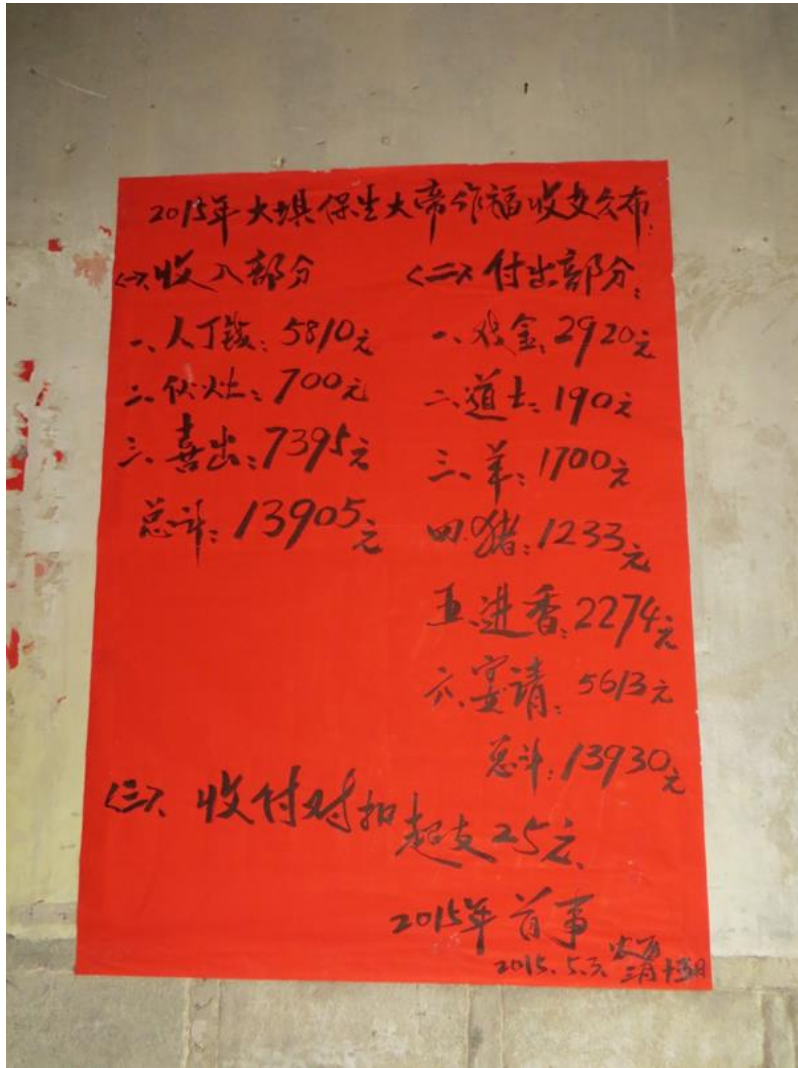 2015年大埧保生大帝作福收支公布:
<一>、收入部分
一、人丁钱:5810元
二、伙灶:700元
三、喜出:7395元
总计:13905元
<二>付出部分:
一、戏金:2920元
二、道士:190元
三、羊:1700元
四、猪:1233元
五、进香:2274元
六、宴请:5613元
总计:13930元
<三>、收付对扣超支25元、
2015年首事
2015.5.3.农历三月十五日